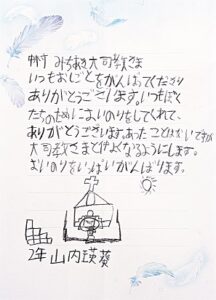 中村 みちあき大司教さま
いつもおしごとをがんばってくださり
ありがとうございます。いつもぼく
たちのためにおいのりをしてくれて、
ありがとうございます。あったことはないですが
大司教さまとなかよくなるようにします。
おいのりをいっぱいがんばります。
2年 山内瑛葵